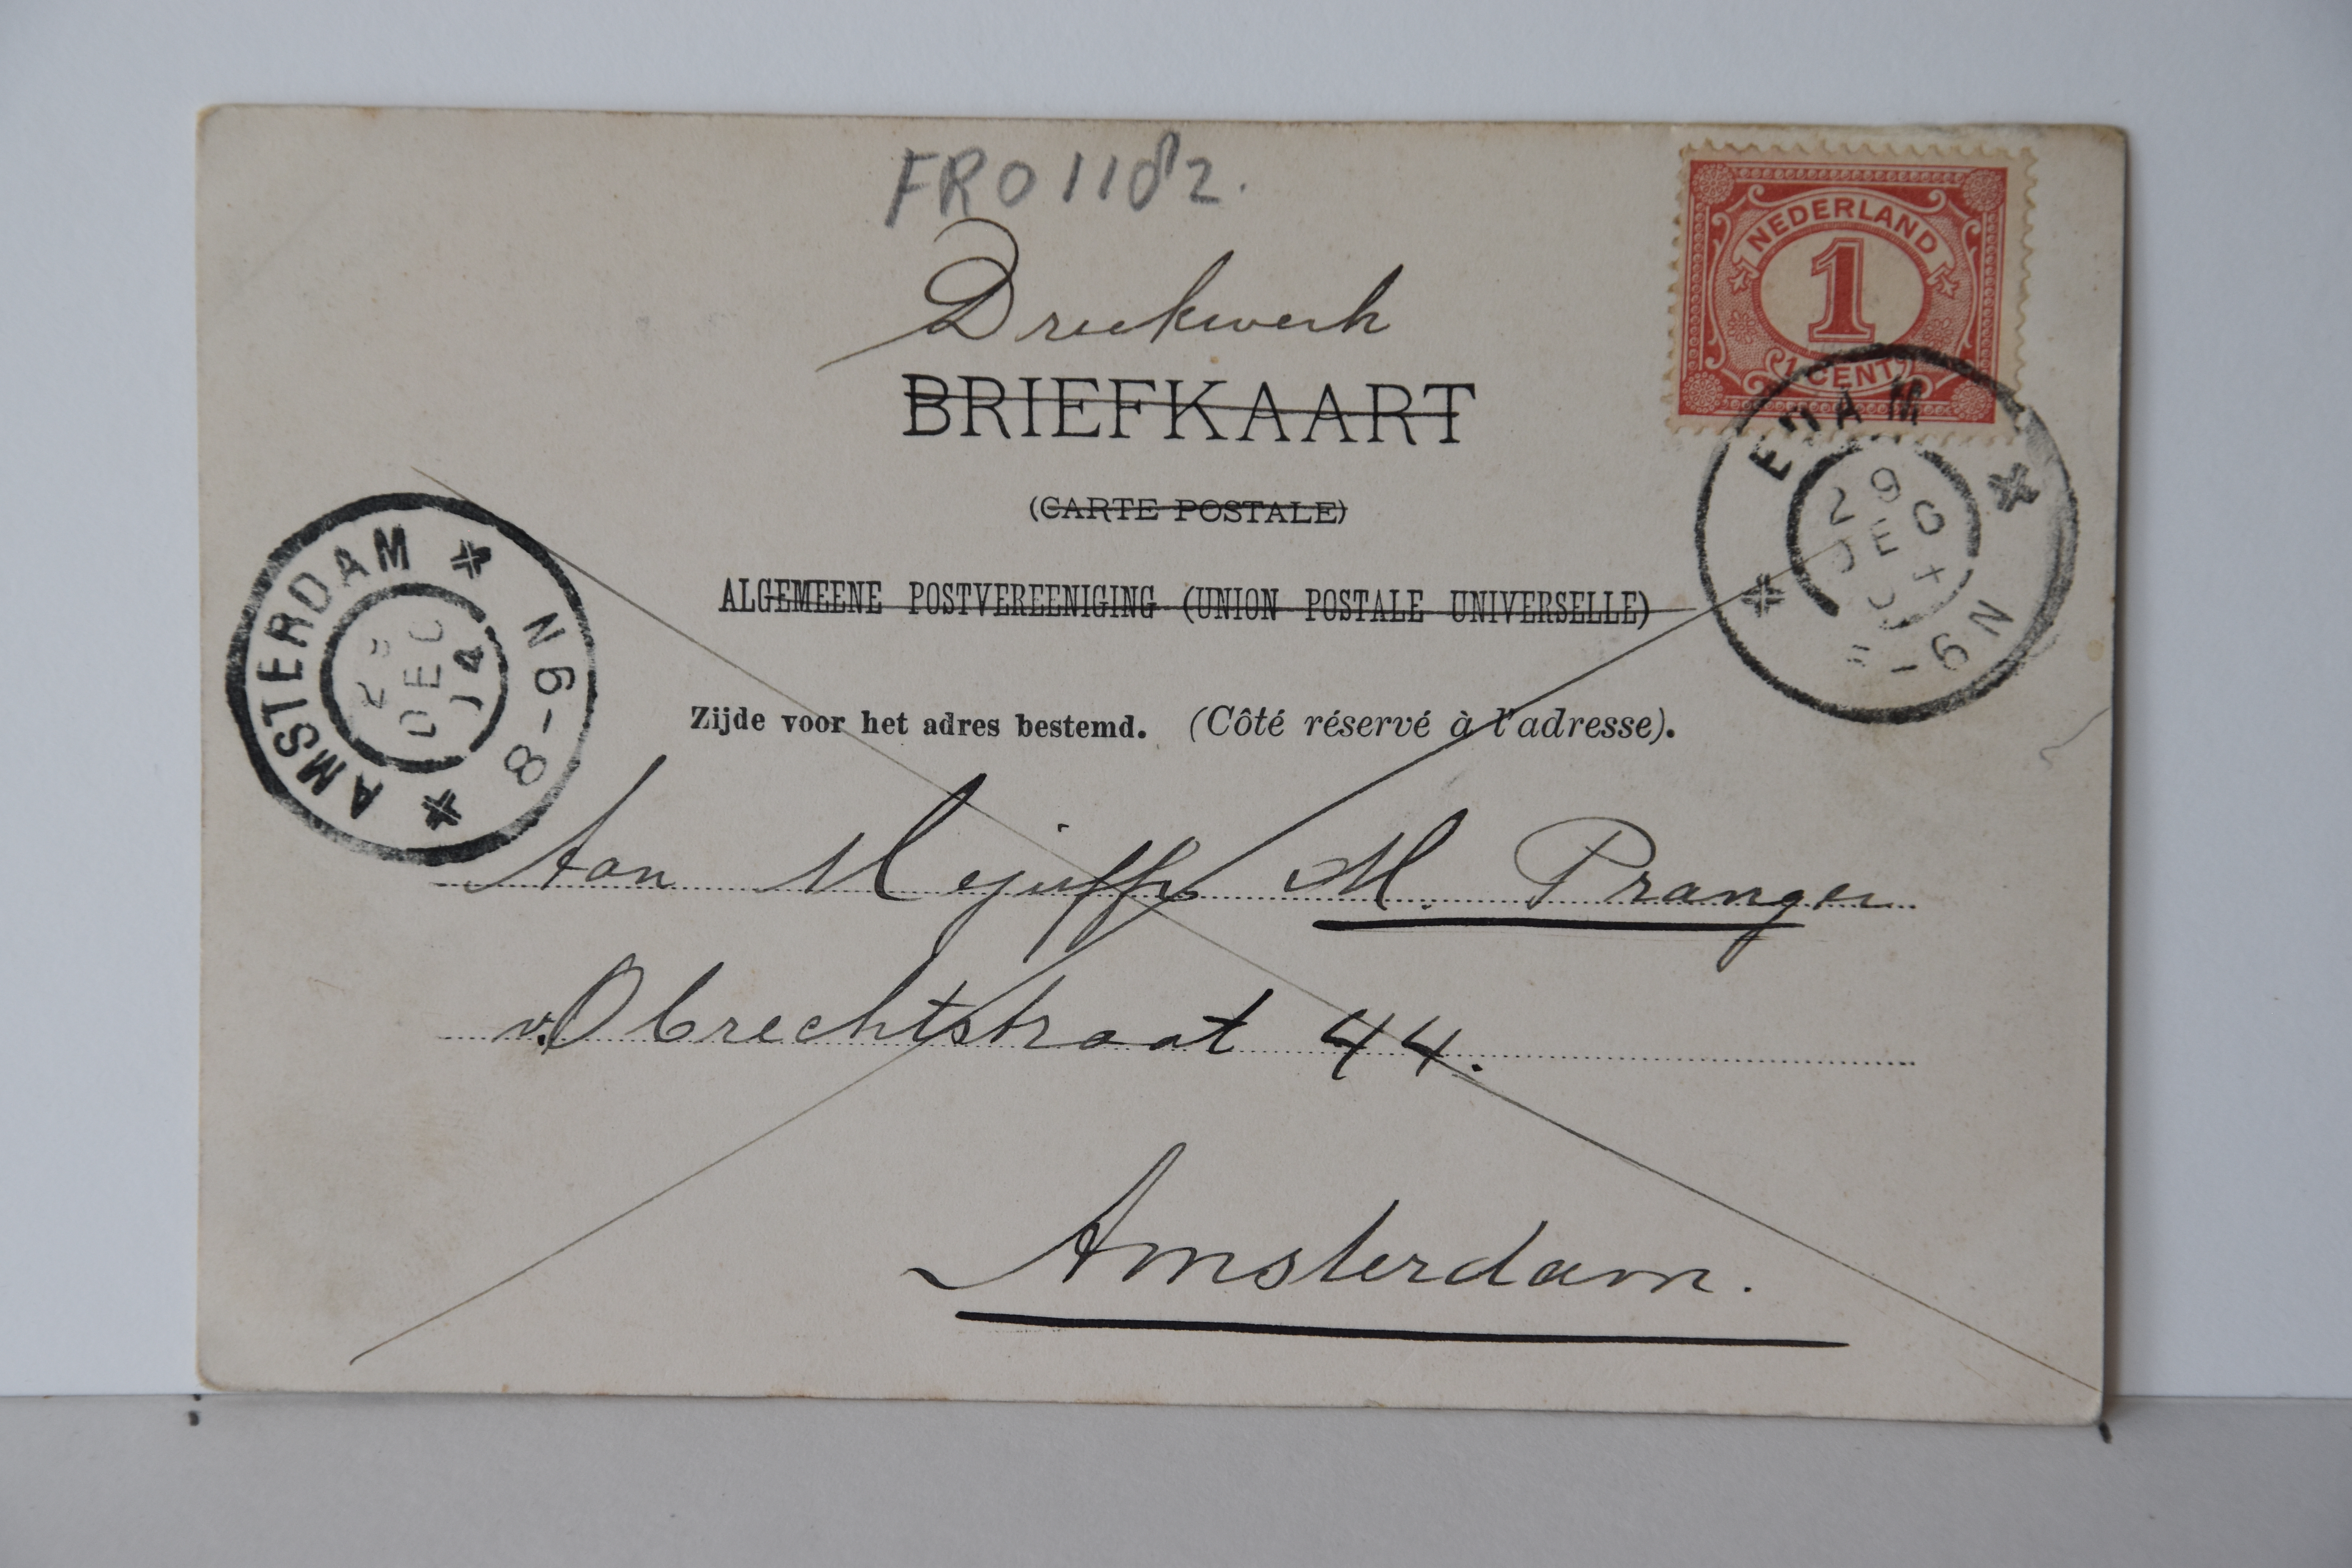 FRO 1182.
NEDERLAND
1
1 CENT
Drukwerk
BRIEFKAART
(CARTE POSTALE)
ALGEMEENE POSTVEREENIGING (UNION POSTALE UNIVERSELLE)
EDAM
29
DEC
N
AMSTERDAM
DEC
8-9N
Zijde voor het adres bestemd. (Côté réservé à l'adresse).
Aan Mejuffr M. Pranger
v. Obrechtstraat 44.
Amsterdam.